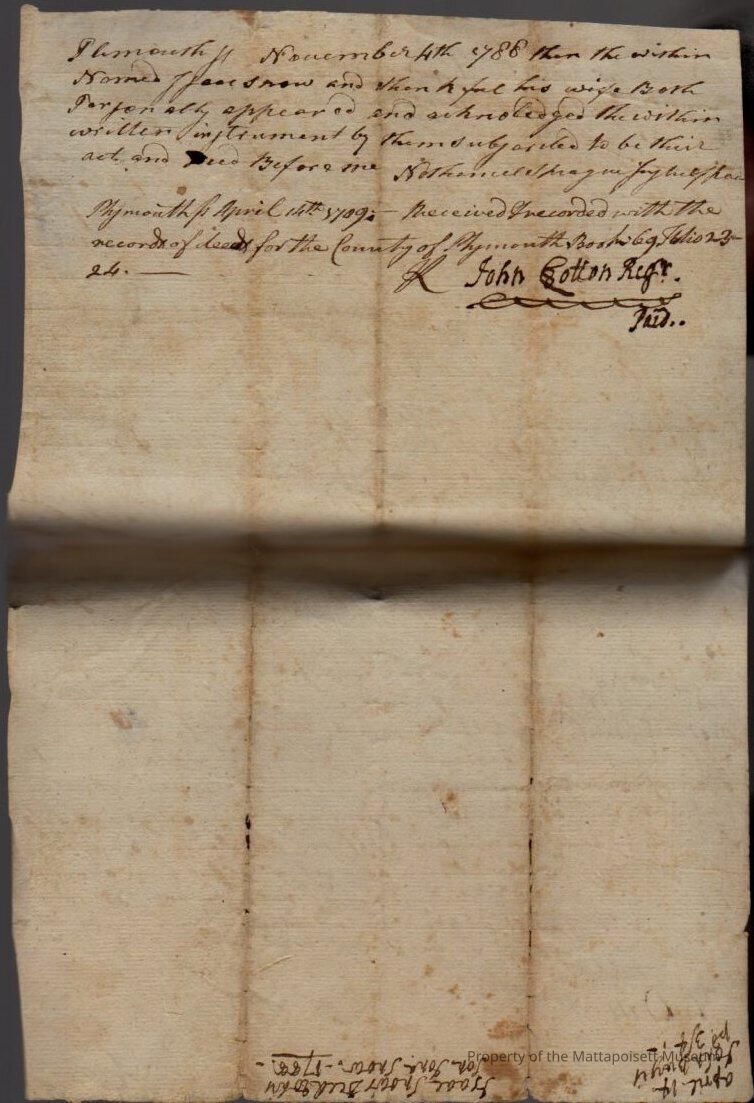 Plimouth ss November 4th 1788 then the within
Named Isaac snow and thankful his wife Both
Personally appeared and acknoledged the within
written instrument by them subscribed to be their
act and Deed Before me Nathaniel Sprague
Plymouth ss April 14th 1789: – Received & recorded with the
records of deeds for the County of Plymouth Book 69 Folio 23–
24. —
John Cotton Regr.
Paid..
Isaac Snows Deed
Son Snow – 1788 –
April 14
Property of the Mattapoisett Museum